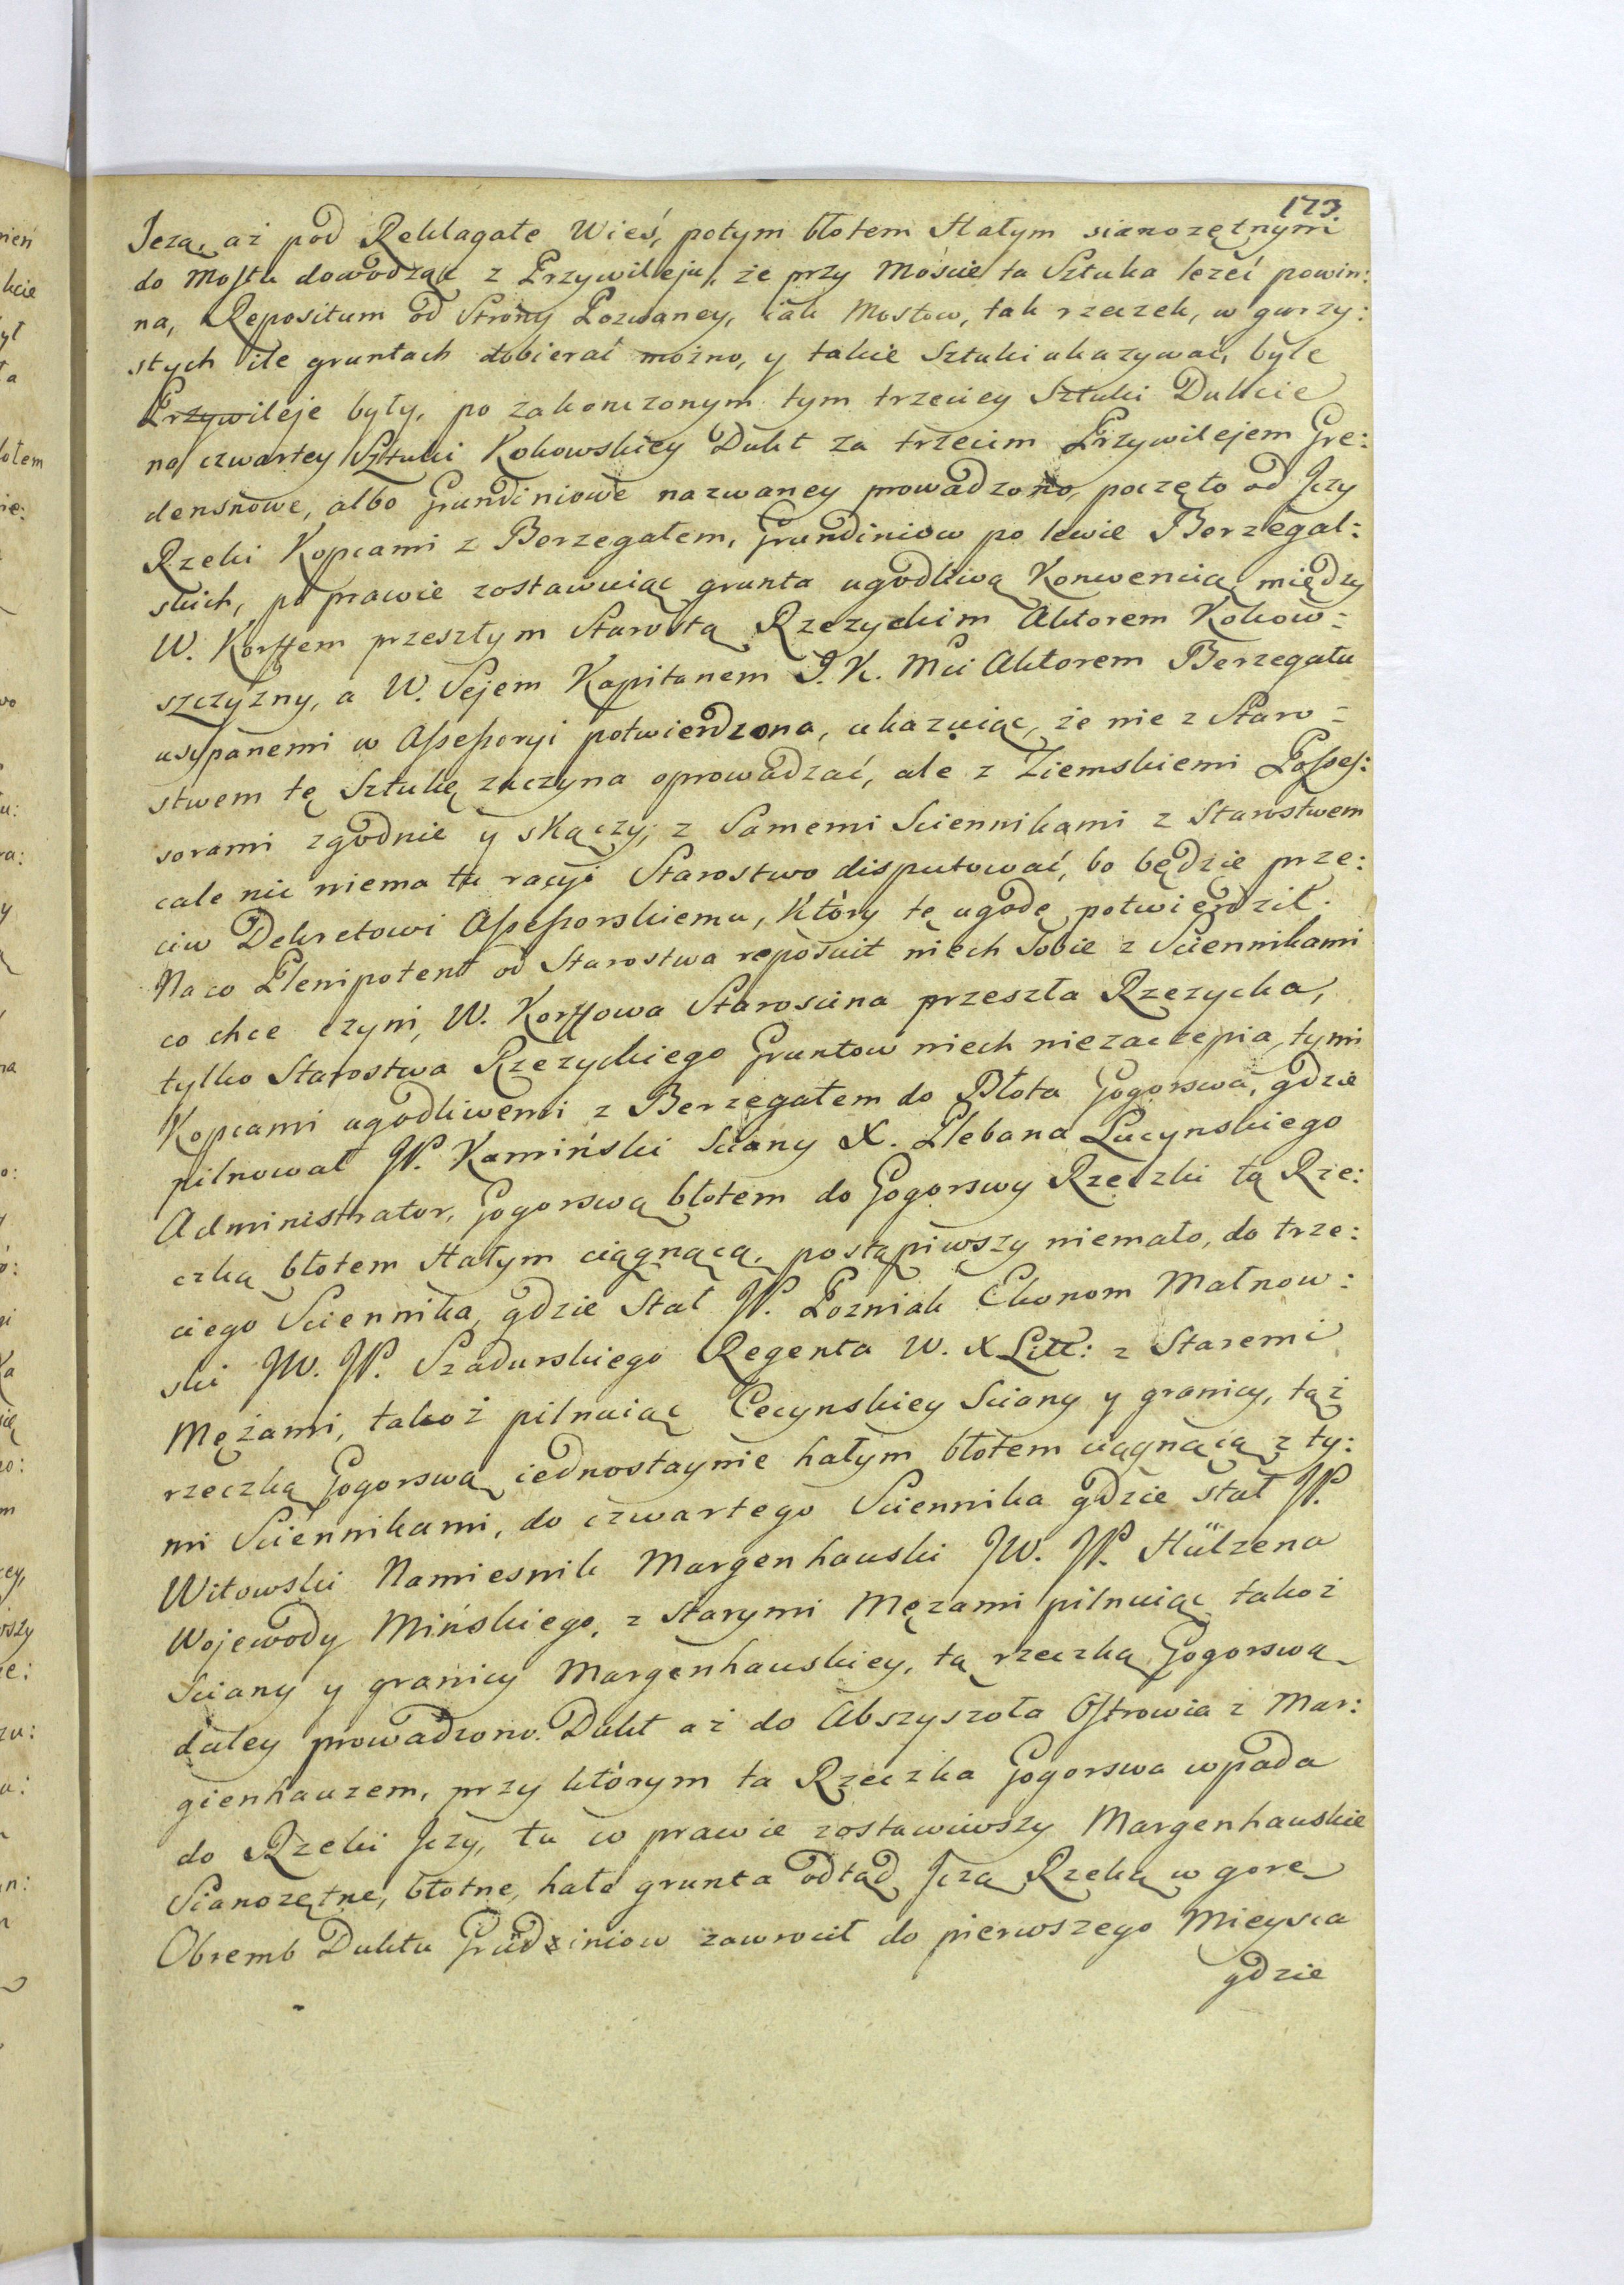 173.
Jezą, aż pod Reklagałe Wieś, potym błotem Hałym sianozętnym
do Mostu dowodząc z Przywileju, że przy Moście ta Sztuka leżeć powin:
na, Repositum od Strony Pozwaney, iak Mostow, tak rzeczek, w gurzy:
stych ile gruntach dobierał można, y takie Sztuki ukazywać, byle
Przywileje były, po zakonczonym tym trzeciey Sztuki Dukcie
na czwartey Sztuki Kokowskiey Dukt za trzecim Przywilejem Gre:
densnowe, albo Grundiniowe nazwaney prowadzono, poczęto od Jczy
Rzeki Kopcami z Berzegałem, Grundiniow po lewie Berzegal:
skich, po prawie zostawuiąc grunta ugodliwą Konwencią między
W. Korffem przeszłym Starostą Rzezyckim Aktorem Kokow:
szczyzny, a W. Sejem Kapitanem J. K. Mci Aktorem Berzegału
usypanemi w Assessoryi potwierdzona, ukazuiąc, że nie z Staro:
stwem tę Sztukę zaczyna oprowadzać, ale z Ziemskiemi Posses:
sorami zgodnie y skączy, z Samemi Sciennikami z Starostwem
cale nic niema tu racyi Starostwo disputować, bo będzie prze:
ciw Dekretowi Assessorskiemu, Który tę ugodę potwierdził.
Na co Plenipotent od Starostwa reposuit niech Sobie z Sciennikami
co chce czyni, W. Korffowa Starościna przeszła Rzezycka,
tylko Starostwa Rzezyckiego Gruntow niech niezaczepia, tymi
Kopcami ugodliwemi z Berzegałem do Błota Gogorswa, gdzie
pilnował JP. Kamiński Sciany X. Plebana Lucynskiego
Administrator, Gogorswą błotem do Gogorswy Rzeczki tą Rze:
czką błotem Hałym ciągnącą, postąpiwszy niemało, do trze:
ciego Sciennika, gdzie Stał JP. Pozniak Ekonom Małnow:
ski JW. JP. Szadurskiego Regenta W. X Litt: z Staremi
Mężami, takoż pilnuiąc Cecynskiey Sciany y granicy, tąż
rzeczką Gogorswą iednostaynie hałym błotem ciągnącą z ty:
mi Sciennikami, do czwartego Sciennika gdzie stał JP.
Witowski Namiesnik Margenhauski JW. JP. Hülzena
Wojewody Mińskiego, z starymi Mężami pilnuiąc takoż
Sciany y granicy Margenhauskiey, tą rzeczką Gogorswą
daley prowadzono Dukt aż do Abszyszoła Ostrowia z Mar:
gienhauzem, przy którym ta Rzeczka Gogorswa wpada
do Rzeki Jczy, tu w prawie zostawiwszy Margenhauskie
Sianozętne, błotne, hałe grunta odtąd Jczą Rzeką w gore
Obremb Duktu Grudziniow zawrocił do pierwszego Mieysca
gdzie